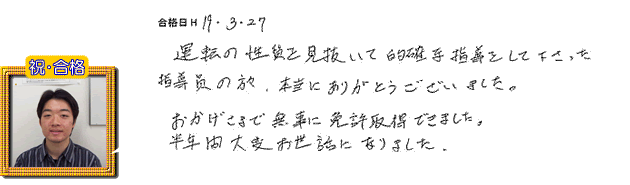 合格日 H 19・3・27
運転の性質を見抜いて的確な指導をして下さった
指導員の方、本当にありがとうございました。
祝・合格
おかげさまで無事に免許取得できました。
半年間大変お世話になりました.